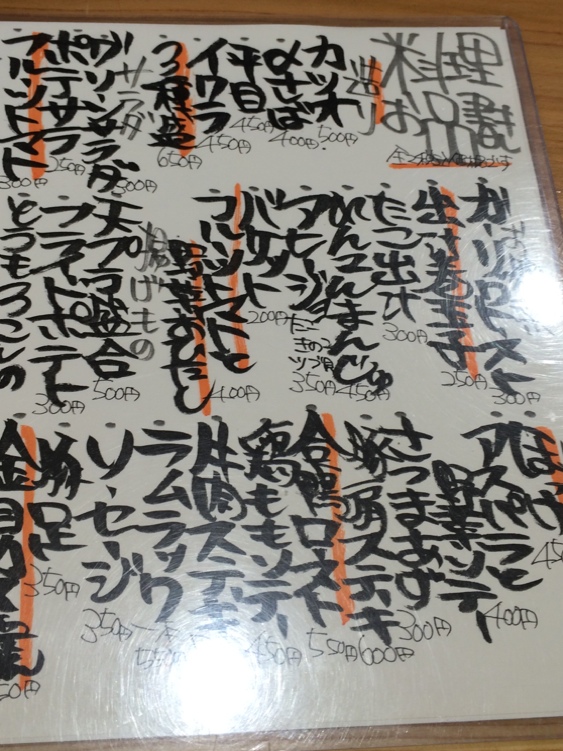 料理
お品書き
造り
カツオ 500円
〆さば 400円
平目 450円
イワシ 450円
3種盛 650円
サラダ
グリーンサラダ 300円
ポテサラ 250円
フルーツトマト 300円
ガーリックトースト 300円
出汁巻玉子 250円
たこ出汁 300円
れんこんまんじゅう 450円
アヒージョ 350円
たこ
きのこ
ツブ貝
バケット 200円
フルーツトマトと
野菜おひたし 400円
揚げもの
天プラ盛合 500円
フライドポテト 300円
とうもろこしの
ほっけ 45
アスパラと
野菜ソテー 400円
さつまあげ 300円
豚肩ステーキ 600円
合鴨ロースト 550円
鶏ももソテー 450円
牛肉ステーキ
ラムラック 一本 550円
ソーセージ 350円
豚足 350円
金目の
50円